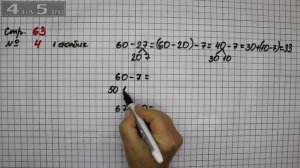 4DA5.
Стр. 63
№ 4 1 столбик
60-27=(60-20)-7=40-7=30+(10-3)=33
20 7
30 10
60-7=
50
67